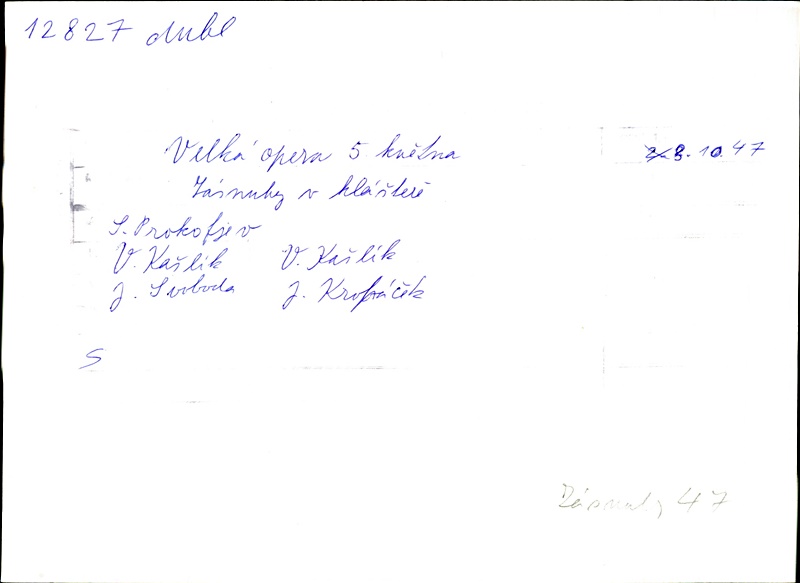 12827 dubl
Velká opera 5 května
3.10.47
Zásnuby v klášteře
S. Prokofjev
V. Kašlík V. Kašlík
J. Svoboda J. Kropáček
S
Zásnuby 47